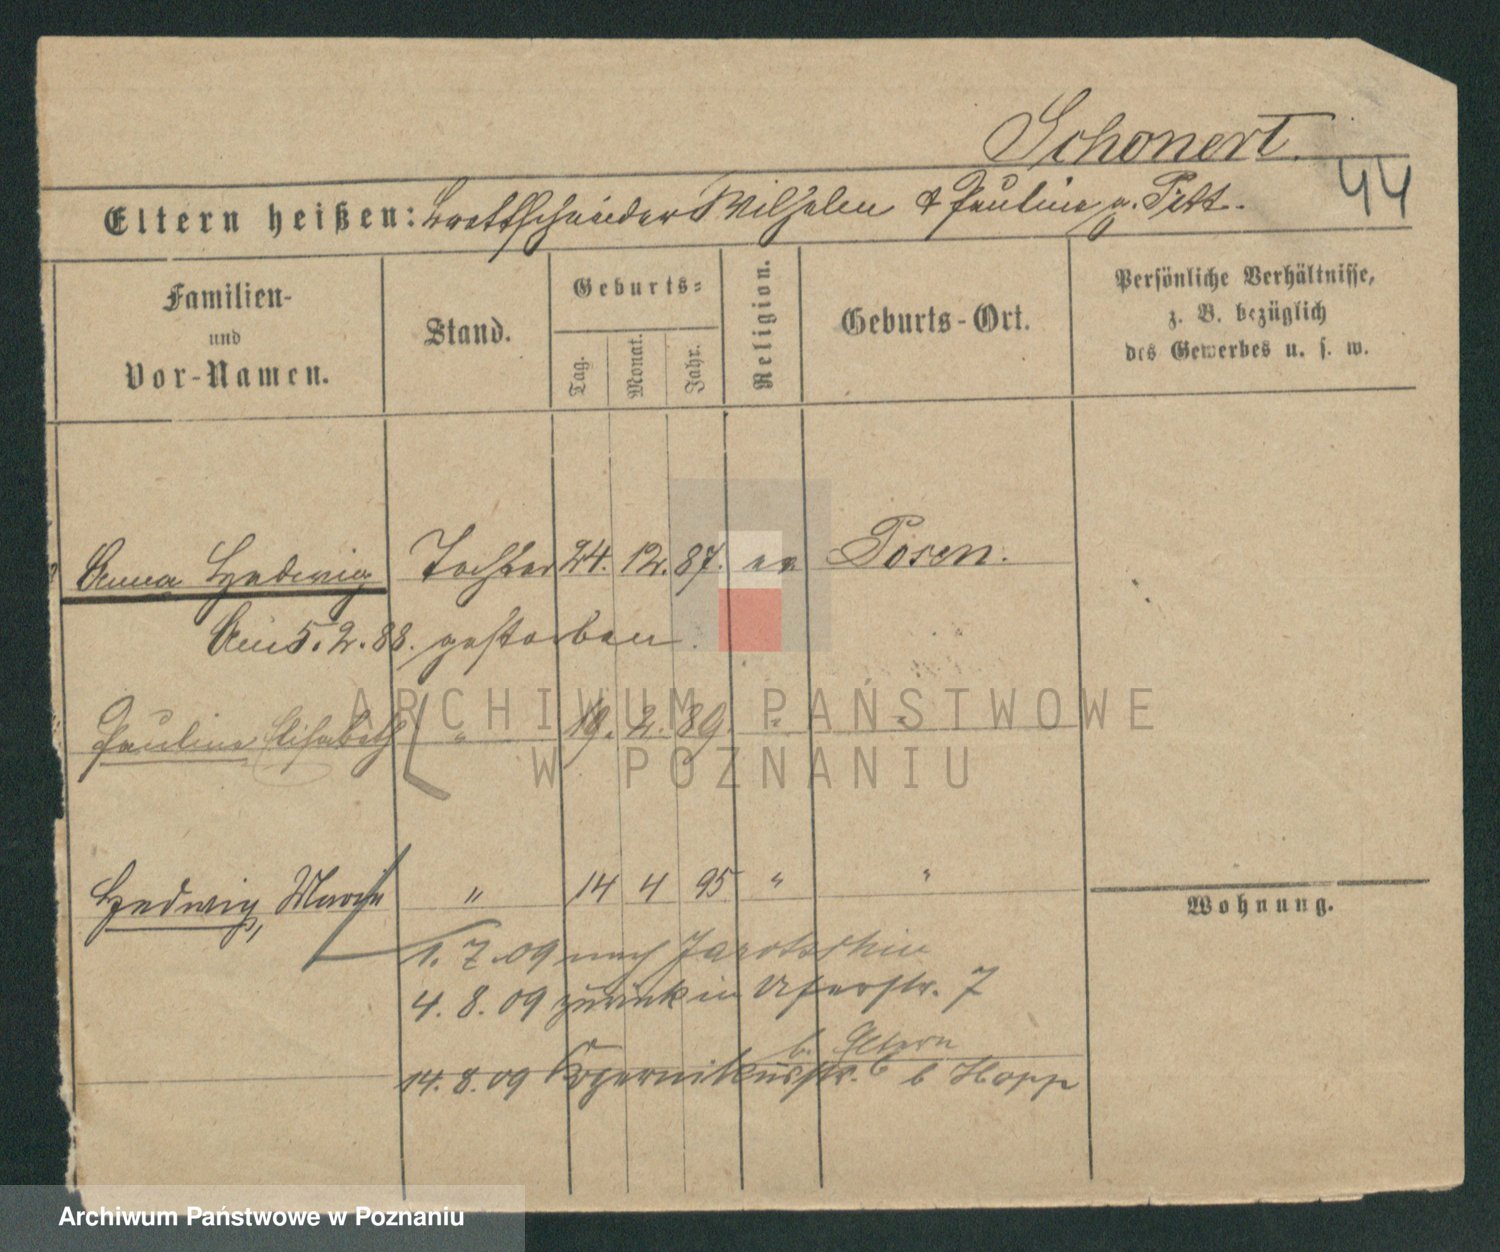 Schonert.
44
Eltern heißen: Brettschneider Wilhelm & Pauline g. Pitt.
Familien- und Vor-Namen.
Stand.
Geburts=
Tag.
Monat.
Jahr.
Religion.
Geburts-Ort.
Persönliche Verhältnisse,
z. B. bezüglich
des Gewerbes u. s. w.
Anna Hedwig Tochter 24. 12. 87. ev Posen.
Am 5. 2. 88. gestorben.
Pauline Elisabeth " 19. 2. 89. " "
Hedwig, Martha " 14 4 95 " "
Wohnung.
1. 7. 09 nach Jarotschin
4. 8. 09 zurück in Uferstr. 7
b. Eltern
14. 8. 09 Kopernikusstr. 6 b Hopp
ARCHIWUM PAŃSTWOWE
W POZNANIU
Archiwum Państwowe w Poznaniu